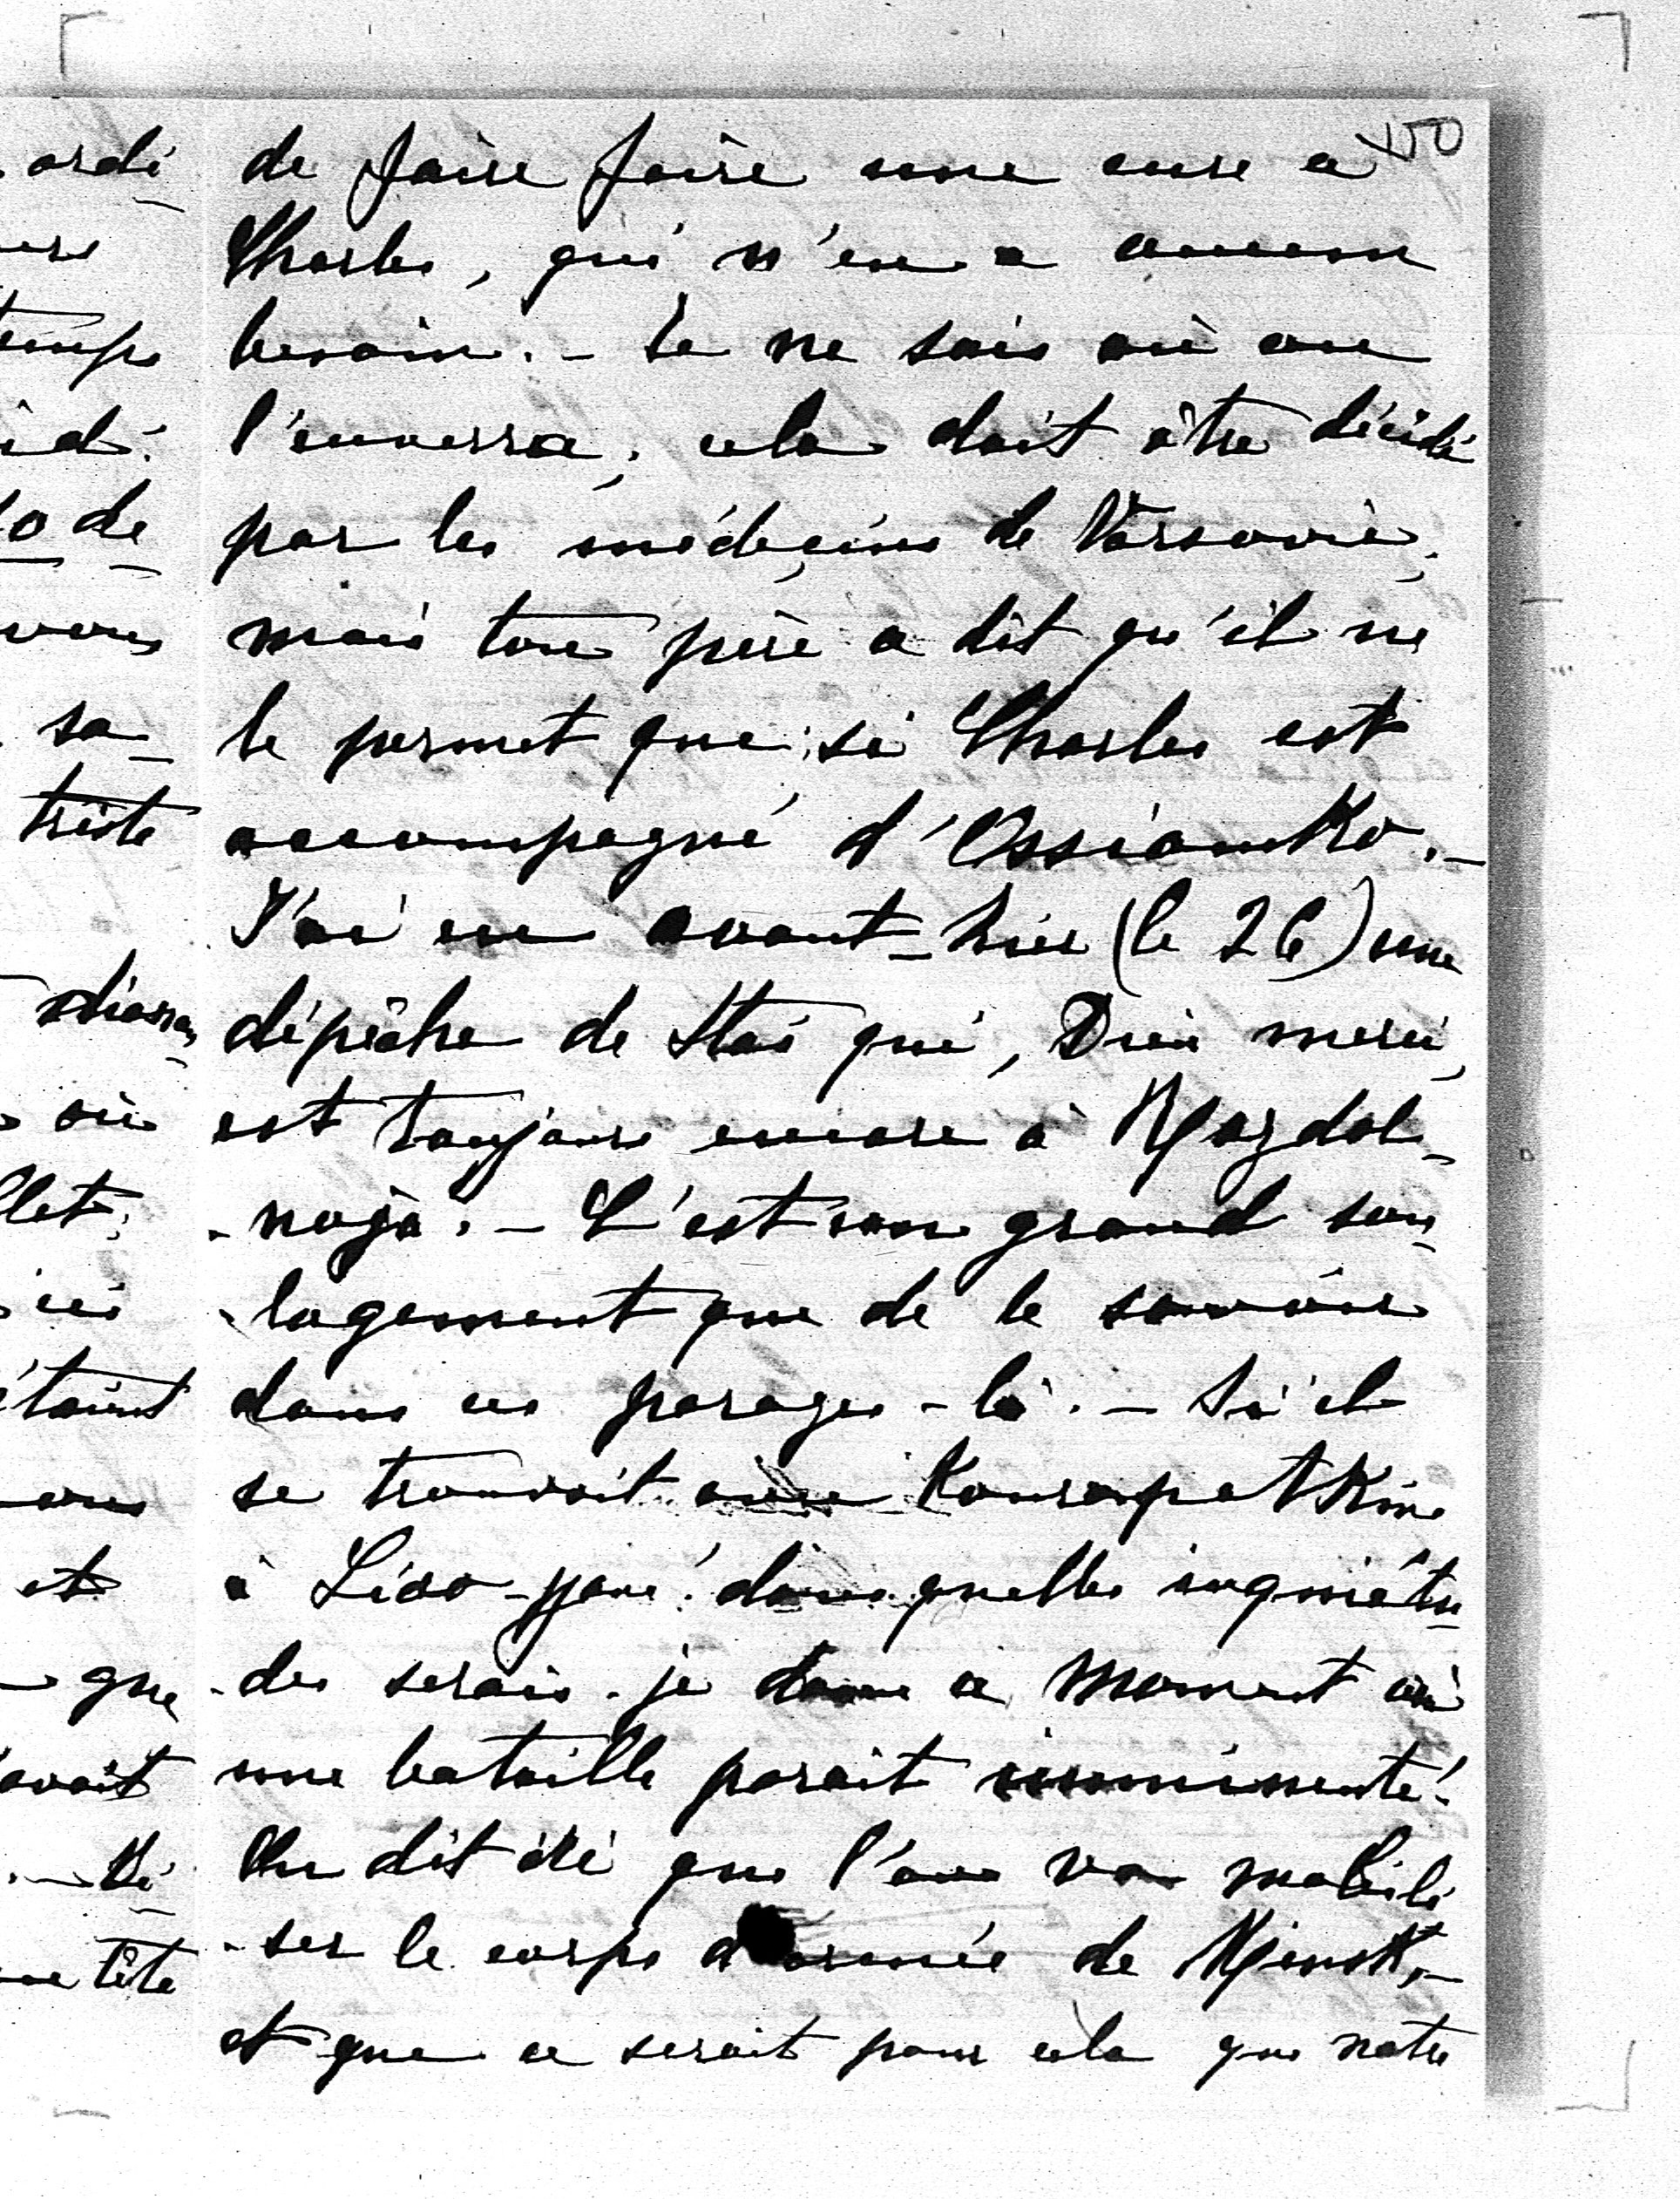 150
de faire faire une cure a
Charles, qui n'en a aucun
besoin. - Je ne sais où on
l'enverra, cela doit être décidé
par les médecins de Varsovie,
mais ton père a dit qu'il ne
le permet que si Charles est
accompagné d'Ossianko. -
J'ai eu avant-hier (le 26) une
dépêche de Stas qui, Dieu merci,
est toujours encore à Rasdol-
-noja. - C'est un grand sou-
-lagement que de le savoir
dans ces parages-là. - Si il
se trouvait avec Kouropatkine
à Liao-yan! dans quelles inquiétu-
-des serais-je dans ce moment où
une bataille parait imminente!
On dit ici que l'on va mobili-
-ser le corps d'armée de Minsk, -
et que ce serait pour cela que notre
ordi-
temps
de
vous
sa-
triste
où
étaient
et
que
avait
tête